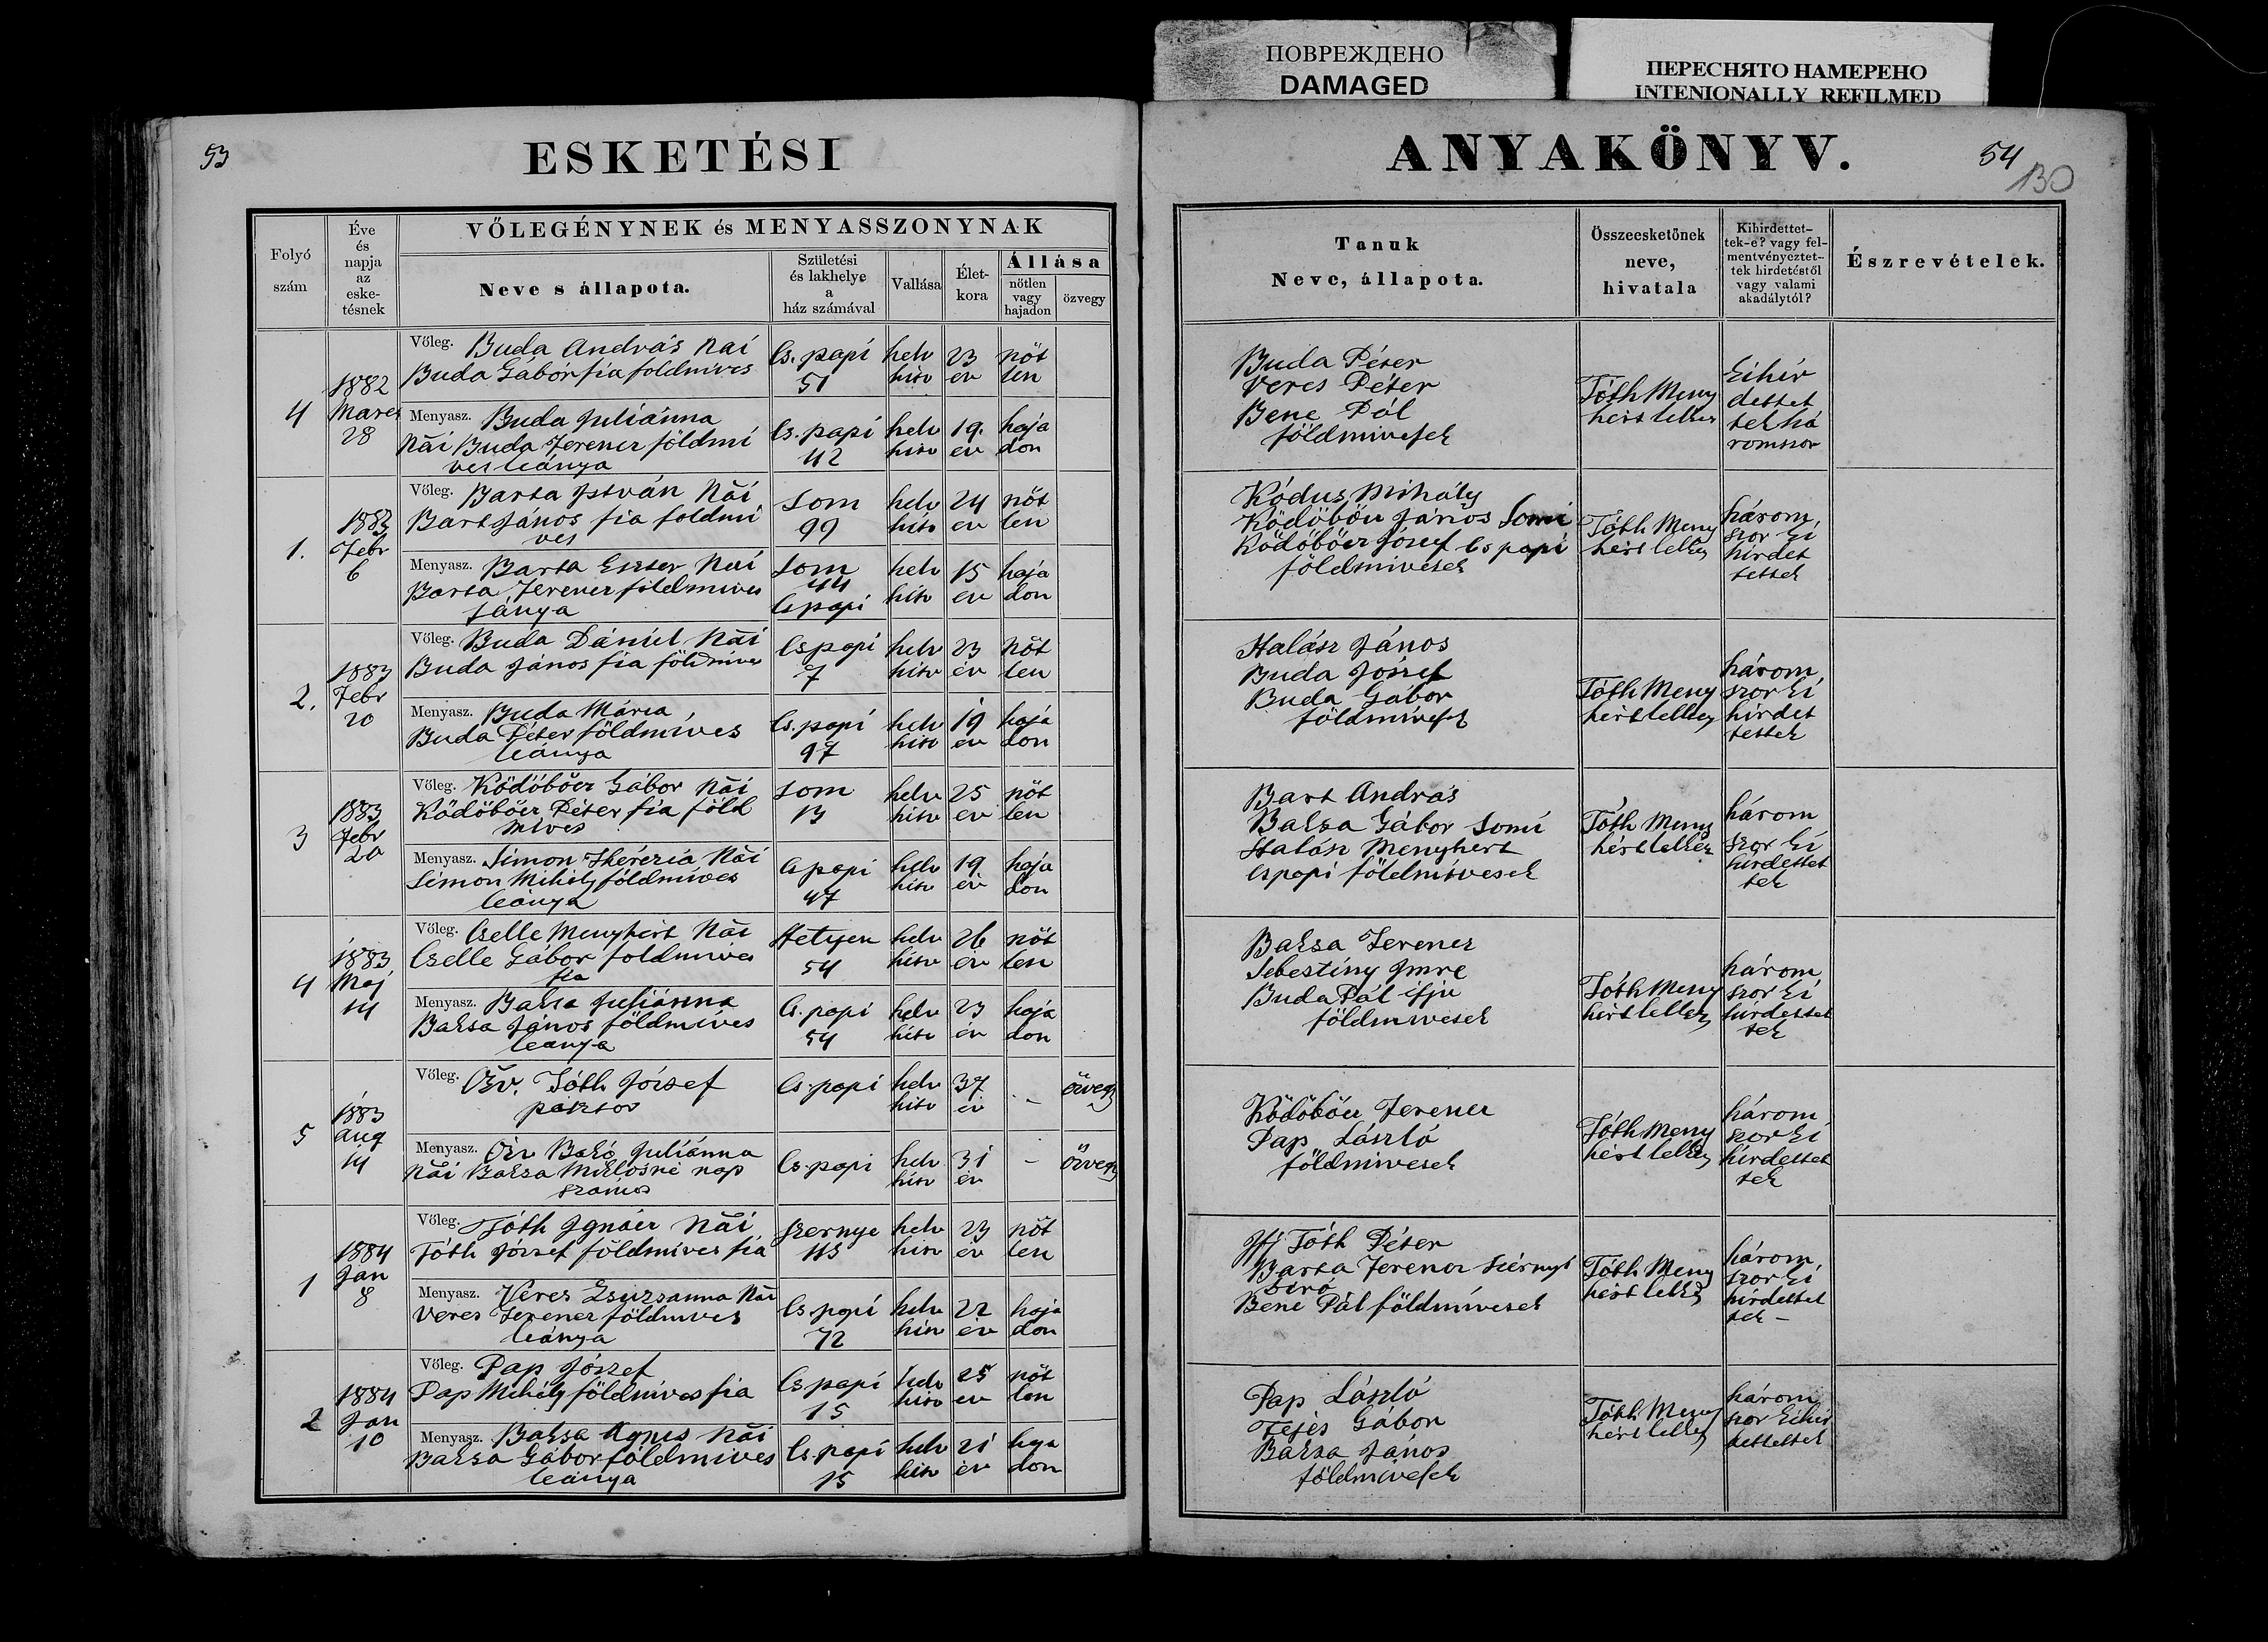 ПОВРЕЖДЕНО
DAMAGED
ПЕРЕСНЯТО НАМЕРЕНО
INTENIONALLY REFILMED
53
ESKETÉSI
Folyó
szám
Éve
és
napja
az
eske-
tésnek
VŐLEGÉNYNEK és MENYASSZONYNAK
Neve s állapota.
Születési
és lakhelye
a
ház számával
Vallása
Élet-
kora
Állása
nőtlen
vagy
hajadon
özvegy
4
1882
Marcz
28
Vőleg. Buda András Nai
Buda Gábor fia földmives
Cs. papi
51
helv
hitv
23
év
nőt
len
Menyasz. Buda Juliánna
Nāi Buda Ferencz földmi
ves leánya
Cs. papi
42
helv
hitv
19.
év
haja
don
1.
1883
Febr
6
Vőleg. Barta István Nāi
Bart János fia foldmi
ves
Som
99
helv
hitv
24
év
nőt
len
Menyasz. Barta Eszter Nai
Barta Ferencz földmives
lánya
Som
44
Cs papi
helv
hitv
15
év
haja
don
2.
1883
Febr
20
Vőleg. Buda Dániel Nāi
Buda János fia földmives
Cs papi
7
helv
hitv
23
év
nőt
len
Menyasz. Buda Mária
Buda Péter földmíves
leánya
Cs. papi
97
helv
hitv
19
év
haja
don
3
1883
Febr
20
Vőleg. Ködöböcz Gábor Nāi
Ködöböcz Péter fia föld
mives
Som
13
helv
hitv
25
év
nőt
len
Menyasz. Simon Therézia Nāi
Simon Mihály földmíves
leánya
Cs papi
47
helv
hitv
19
év
haja
don
4
1883
Maj
14
Vőleg. Cselle Menyhért Nāi
Cselle Gábor foldmives
fia
Hetyen
54
helv
hitv
26
év
nőt
len
Menyasz. Baksa Juliánna
Baksa János földmíves
leanya
Cs. papi
54
helv
hitv
23
év
haja
don
5
1883
Aug
14
Vőleg. Özv. Tóth József
pásztor
Cs. papi
helv
hitv
37
év
–
özvegy
Menyasz. Özv Bakó Juliánna
Nāi Baksa Miklósné nap
számos
Cs. papi
helv
hitv
31
év
–
özvegy
1
1884
Jan
8
Vőleg. Tóth Ignácz Nāi
Tóth József földmíves fia
Szernye
113
helv
hitv
23
év
nőt
len
Menyasz. Veres Zsuzsanna Nāi
Veres Ferencz földmives
leánya
Cs. papi
72
helv
hitv
22
év
haja
don
2
1884
Jan
10
Vőleg. Pap József
Pap Mihály földmíves fia
Cs papi
15
helv
hitv
25
év
nőt
len
Menyasz. Baksa Agnes Nāi
Baksa Gábor földmives
leánya
Cs. papi
15
helv
hitv
21
év
haja
don
ANYAKÖNYV.
54
130
Tanuk
Neve, állapota.
Összeesketőnek
neve,
hivatala
Kihirdettet-
tek-e? vagy fel-
mentvényeztet-
tek hirdetéstől
vagy valami
akadálytól?
Észrevételek.
Buda Péter
Veres Péter
Bene Pál
földmivesek
Tóth Meny
hért lelkész
kihir
dettet
tek há
romszor
Kódus Mihály
Ködöböcz János Somi
Ködöböcz József Cs papi
földmivések
Tóth Meny
hért lelkész
három
szor ki
hirdet
tettek
Halász János
Buda József
Buda Gábor
földmívesek
Tóth Meny
hért lelkész
három
szor ki
hirdet
tettek
Bart András
Baksa Gábor Somi
Halász Menyhert
Cspapi földmívesek
Tóth Meny
hért lelkész
három
szor ki
hirdettet
tek
Baksa Ferencz
Sebestény Imre
Buda Pál ifju
földmivesek
Tóth Meny
hért lelkész
három
szor ki
hirdettet
tek
Ködöböcz Ferencz
Pap László
földmivesek
Tóth Meny
hért lelkész
három
szor ki
hirdettet
tek
Ifj Tóth Péter
Barta Ferencz
biró
Bene Pál földmívesek
Tóth Meny
hért lelkész
három
szor ki
hirdettet
tek –
Pap László
Fejés Gábor
Baksa János
földmívesek
Tóth Meny
hért lelkész
három
szor kihir
dettettek